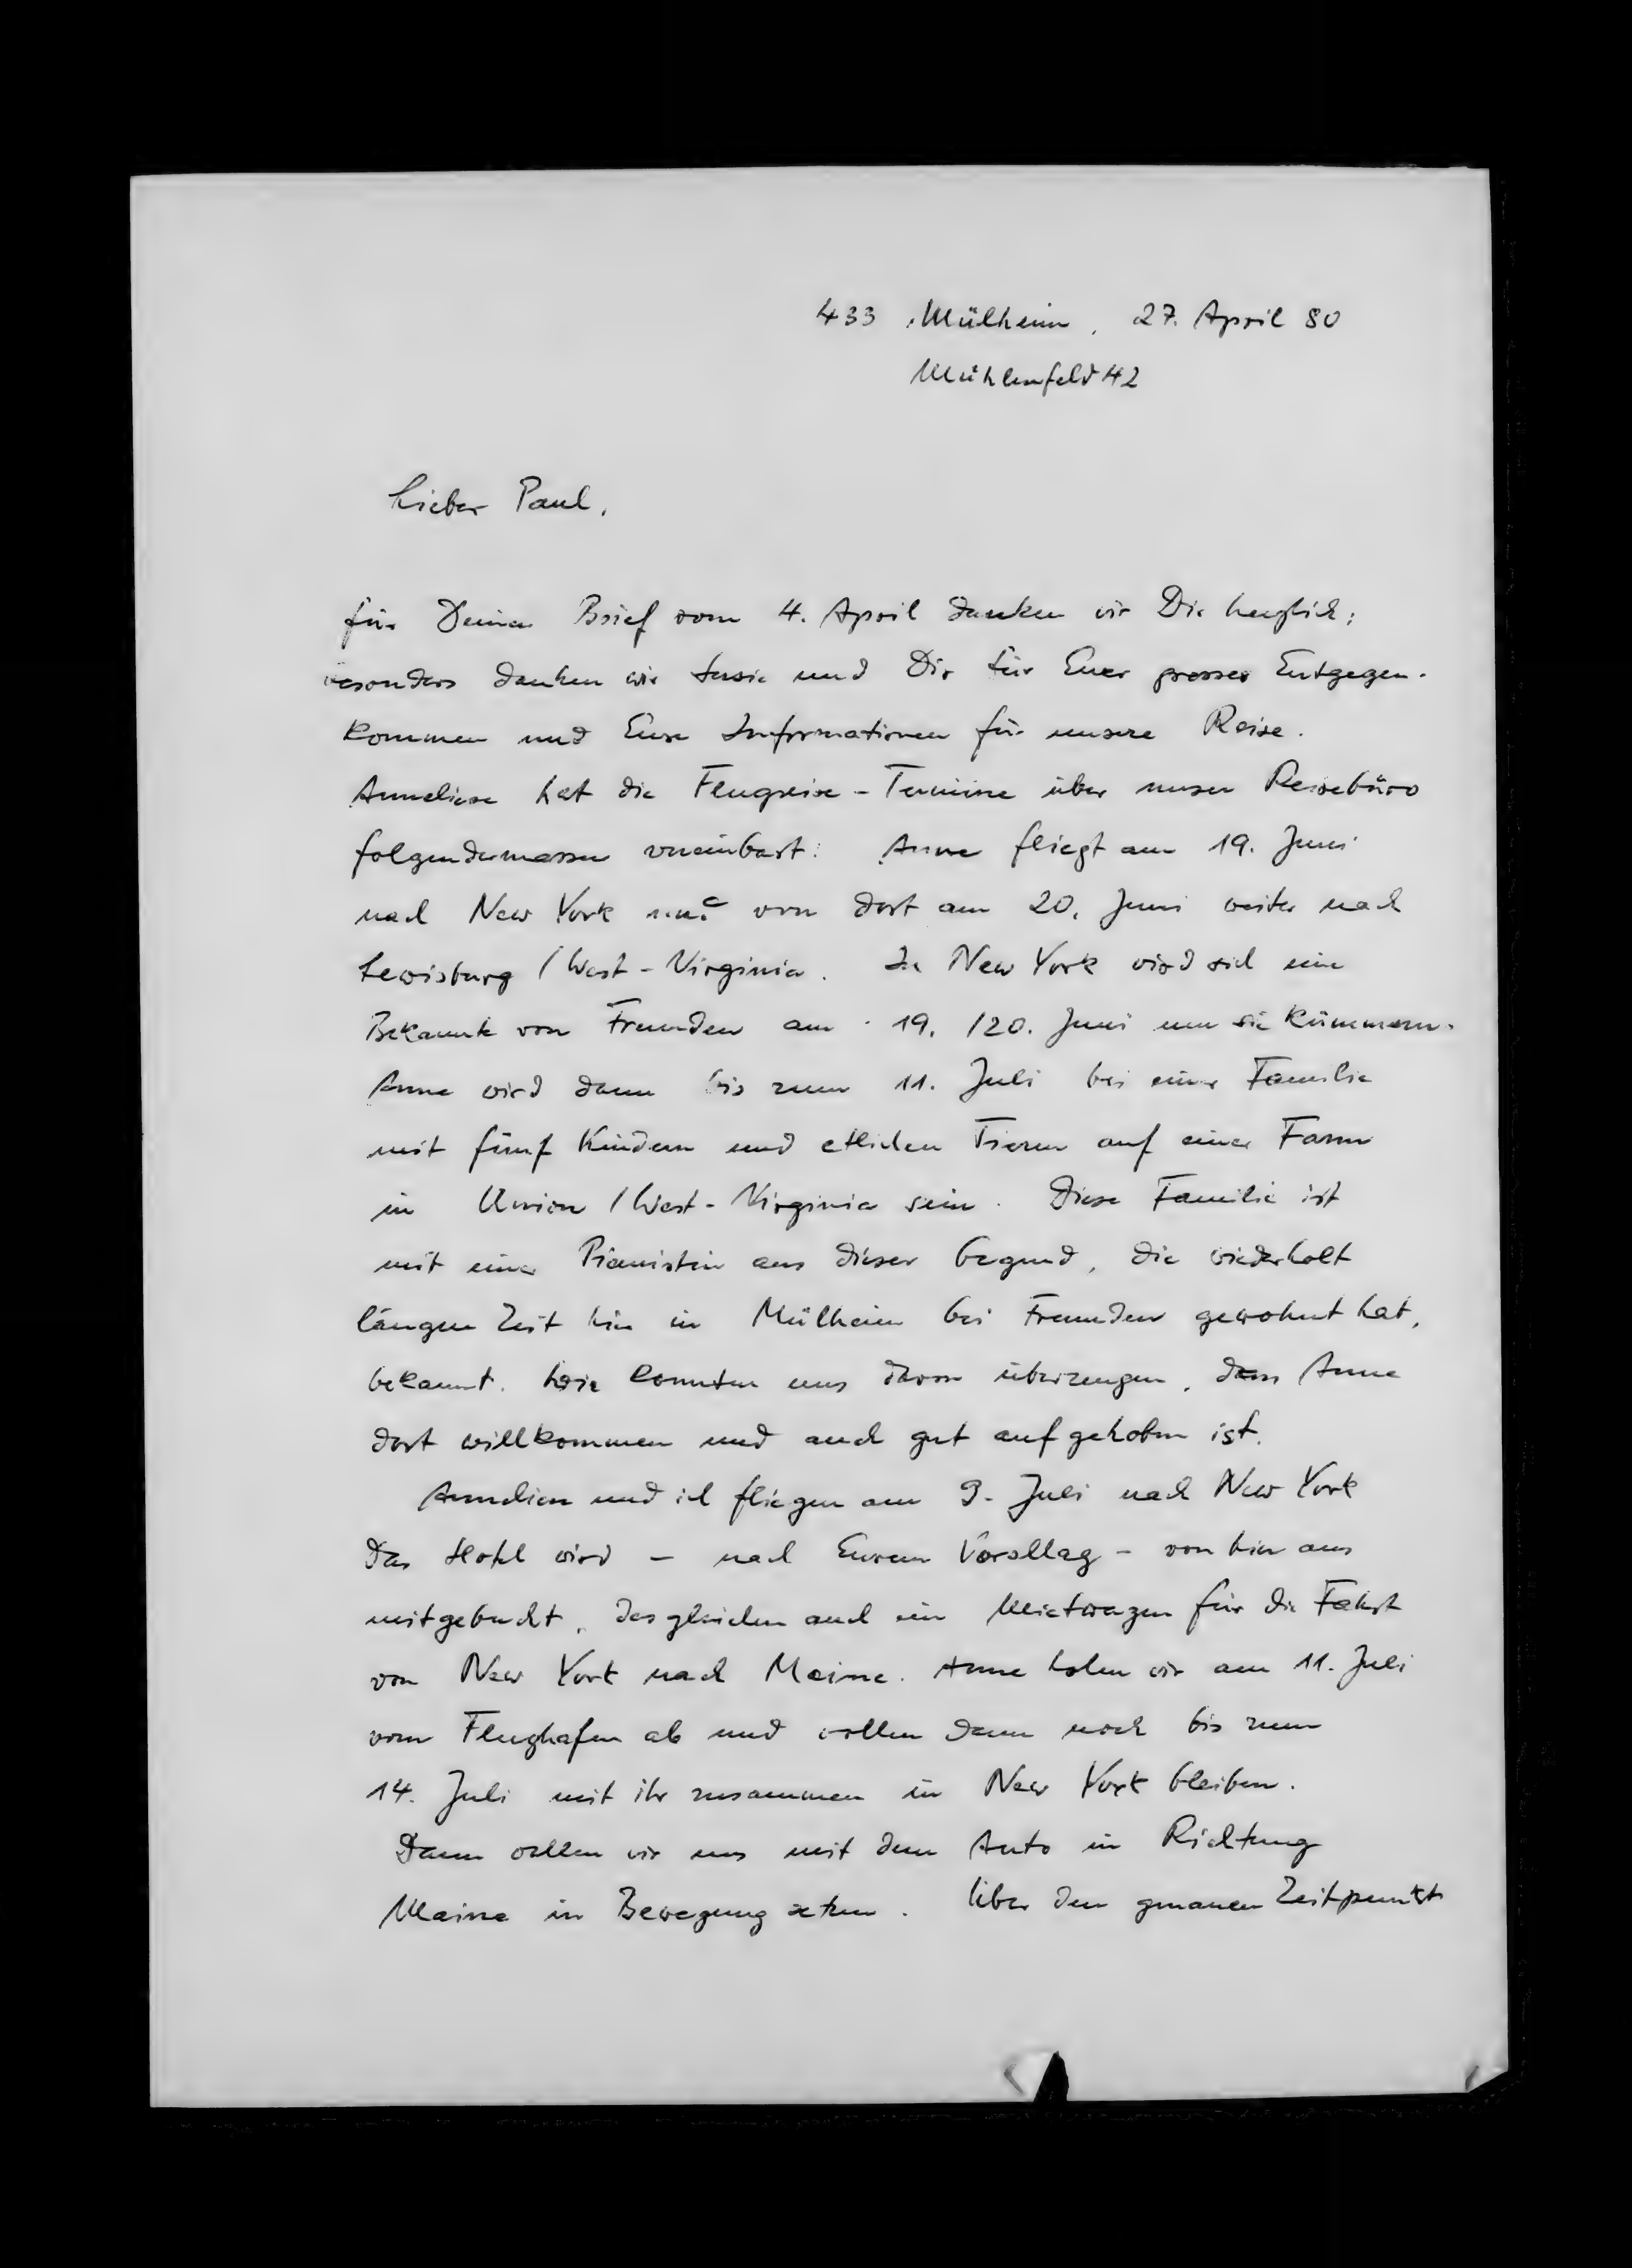 433 Mülheim, 27. April 80
Mühlenfeld 42
Lieber Paul,
für Deinen Brief vom 4. April danken wir Dir herzlich;
besonders danken wir Susie und Dir für Euer grosses Entgegen-
kommen und Eure Informationen für unsere Reise.
Anneliese hat die Flugreise-Termine über unser Reisebüro
folgendermassen vereinbart: Anne fliegt am 19. Juni
nach New York und von dort am 20. Juni weiter nach
Lewisburg / West-Virginia. In New York wird sich eine
Bekannte von Freunden am 19./20. Juni um sie kümmern.
Anne wird dann bis zum 11. Juli bei einer Familie
mit fünf Kindern und etlichen Tieren auf einer Farm
in Union / West-Virginia sein. Diese Familie ist
mit einer Pianistin aus dieser Gegend, die wiederholt
längere Zeit hier in Mülheim bei Freunden gewohnt hat,
bekannt. Wir konnten uns davon überzeugen, dass Anne
dort willkommen und auch gut aufgehoben ist.
Anneliese und ich fliegen am 9. Juli nach New York
Das Hotel wird - nach Eurem Vorschlag - von hier aus
mitgebucht, desgleichen auch ein Mietwagen für die Fahrt
von New York nach Maine. Anne holen wir am 11. Juli
vom Flughafen ab und wollen dann noch bis zum
14. Juli mit ihr zusammen in New York bleiben.
Dann wollen wir uns mit dem Auto in Richtung
Maine in Bewegung setzen. Über den genauen Zeitpunkt